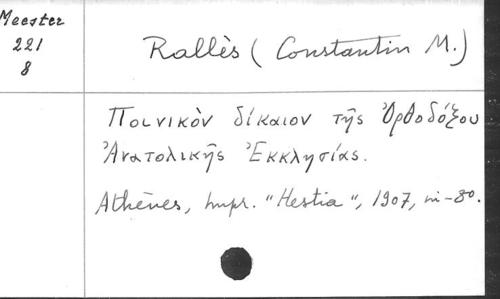 Meester
221
8
Rallès (Constantin M.)
Ποινικὸν δίκαιον τῆς Ὀρθοδόξου
Ἀνατολικῆς Ἐκκλησίας.
Athènes, Impr. "Hestia", 1907, in-8o.